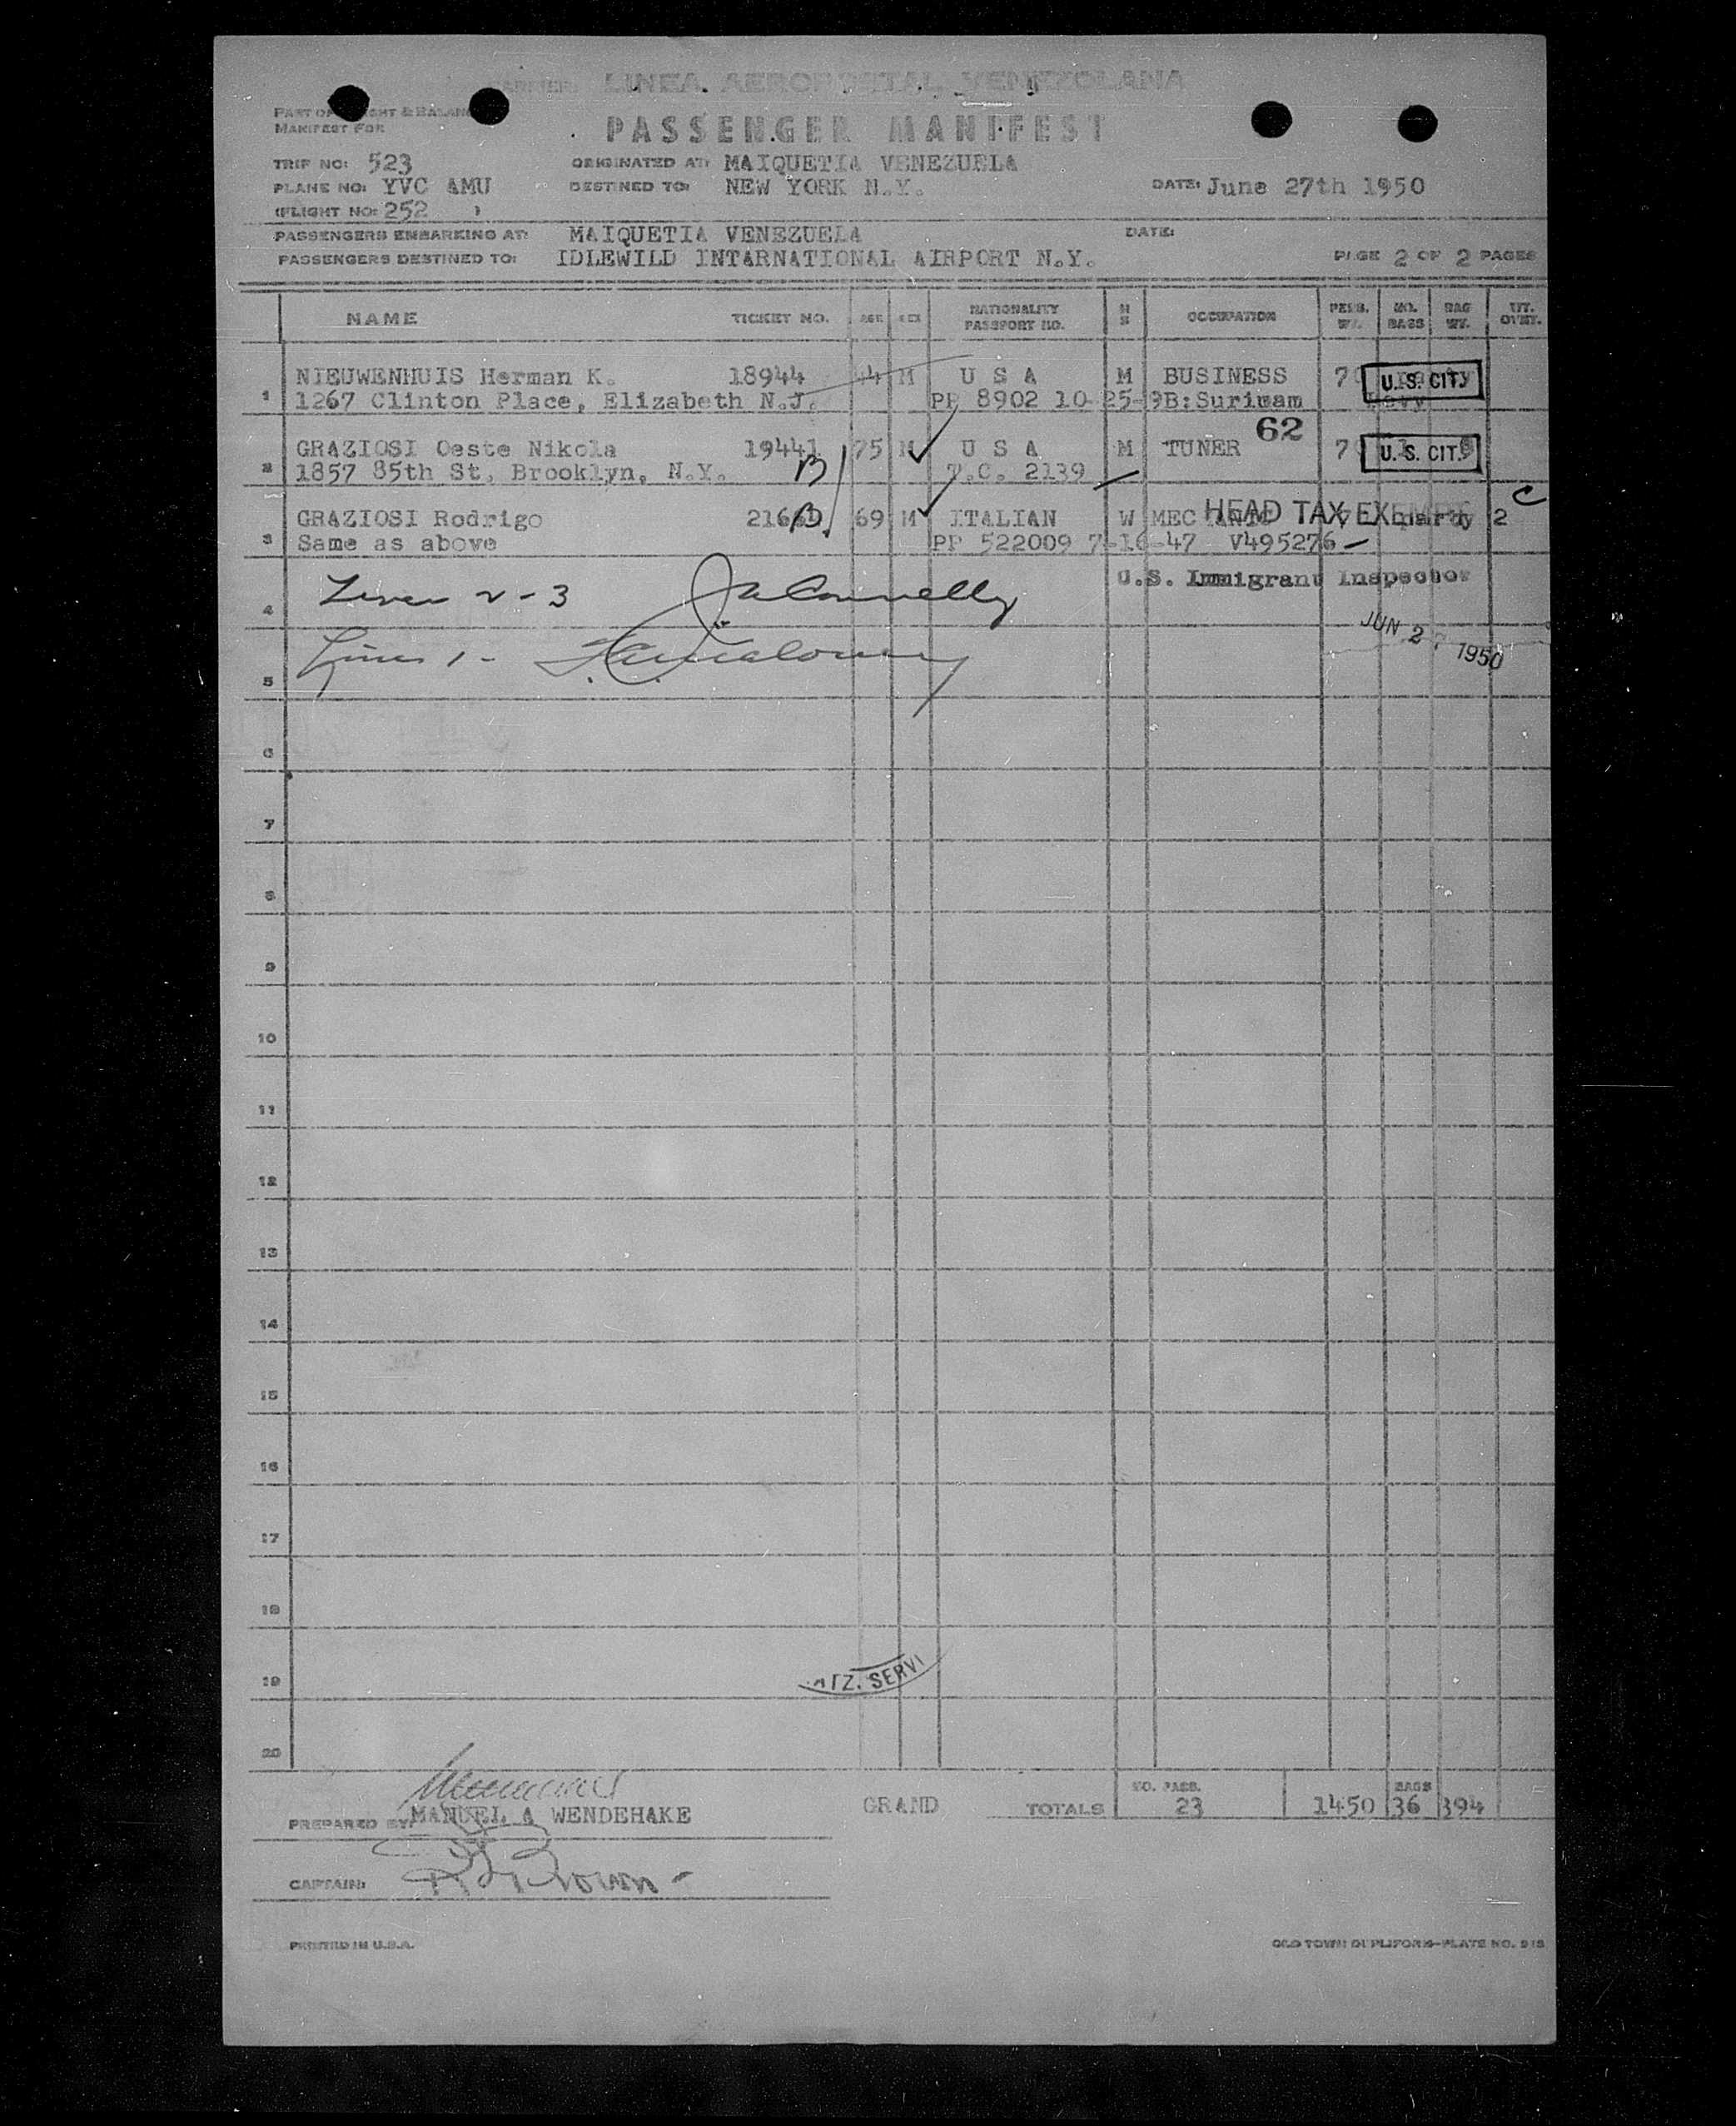 CARRIER: LINEA AEROPOSTAL VENEZOLANA
PART OF & BALANCE
MANIFEST FOR
PASSENGER MANIFEST
TRIP NO: 523 ORIGINATED AT: MAIQUETIA VENEZUELA
PLANE NO: YVC AMU DESTINED TO: NEW YORK N.Y. DATE: June 27th 1950
(FLIGHT NO: 252 )
PASSENGERS EMBARKING AT: MAIQUETIA VENEZUELA DATE:
PASSENGERS DESTINED TO: IDLEWILD INTARNATIONAL AIRPORT N.Y. PAGE 2 OF 2 PAGES
NAME TICKET NO. AGE SEX NATIONALITY PASSPORT NO. M S OCCUPATION PERS. WT. NO. BAGS BAG WT. WT. OVRT.
1 NIEUWENHUIS Herman K. 18944 44 M U S A M BUSINESS U.S. CIT.
1267 Clinton Place, Elizabeth N.J. PP 8902 10-25-9B:Surinam
62
2 GRAZIOSI Oeste Nikola 19441 75 M U S A M TUNER U.S. CIT.
1857 85th St, Brooklyn, N.Y. B T.C. 2139
3 GRAZIOSI Rodrigo B 69 M ITALIAN W HEAD TAX EXEMPT 2 C
Same as above PP 522009 7-16-47 V495276
U.S. Immigrant Inspector
4 Lines 2-3 Connelly
JUN 27 1950
5 Lines 1 -
6
7
8
9
10
11
12
13
14
15
16
17
18
19
20
NO. PASS. BAGS
PREPARED BY: MANUEL A WENDEHAKE GRAND TOTALS 23 1450 36 394
CAPTAIN: Brown
PRINTED IN U.S.A. OLD TOWN DUPLIFORM-PLATE NO. 915